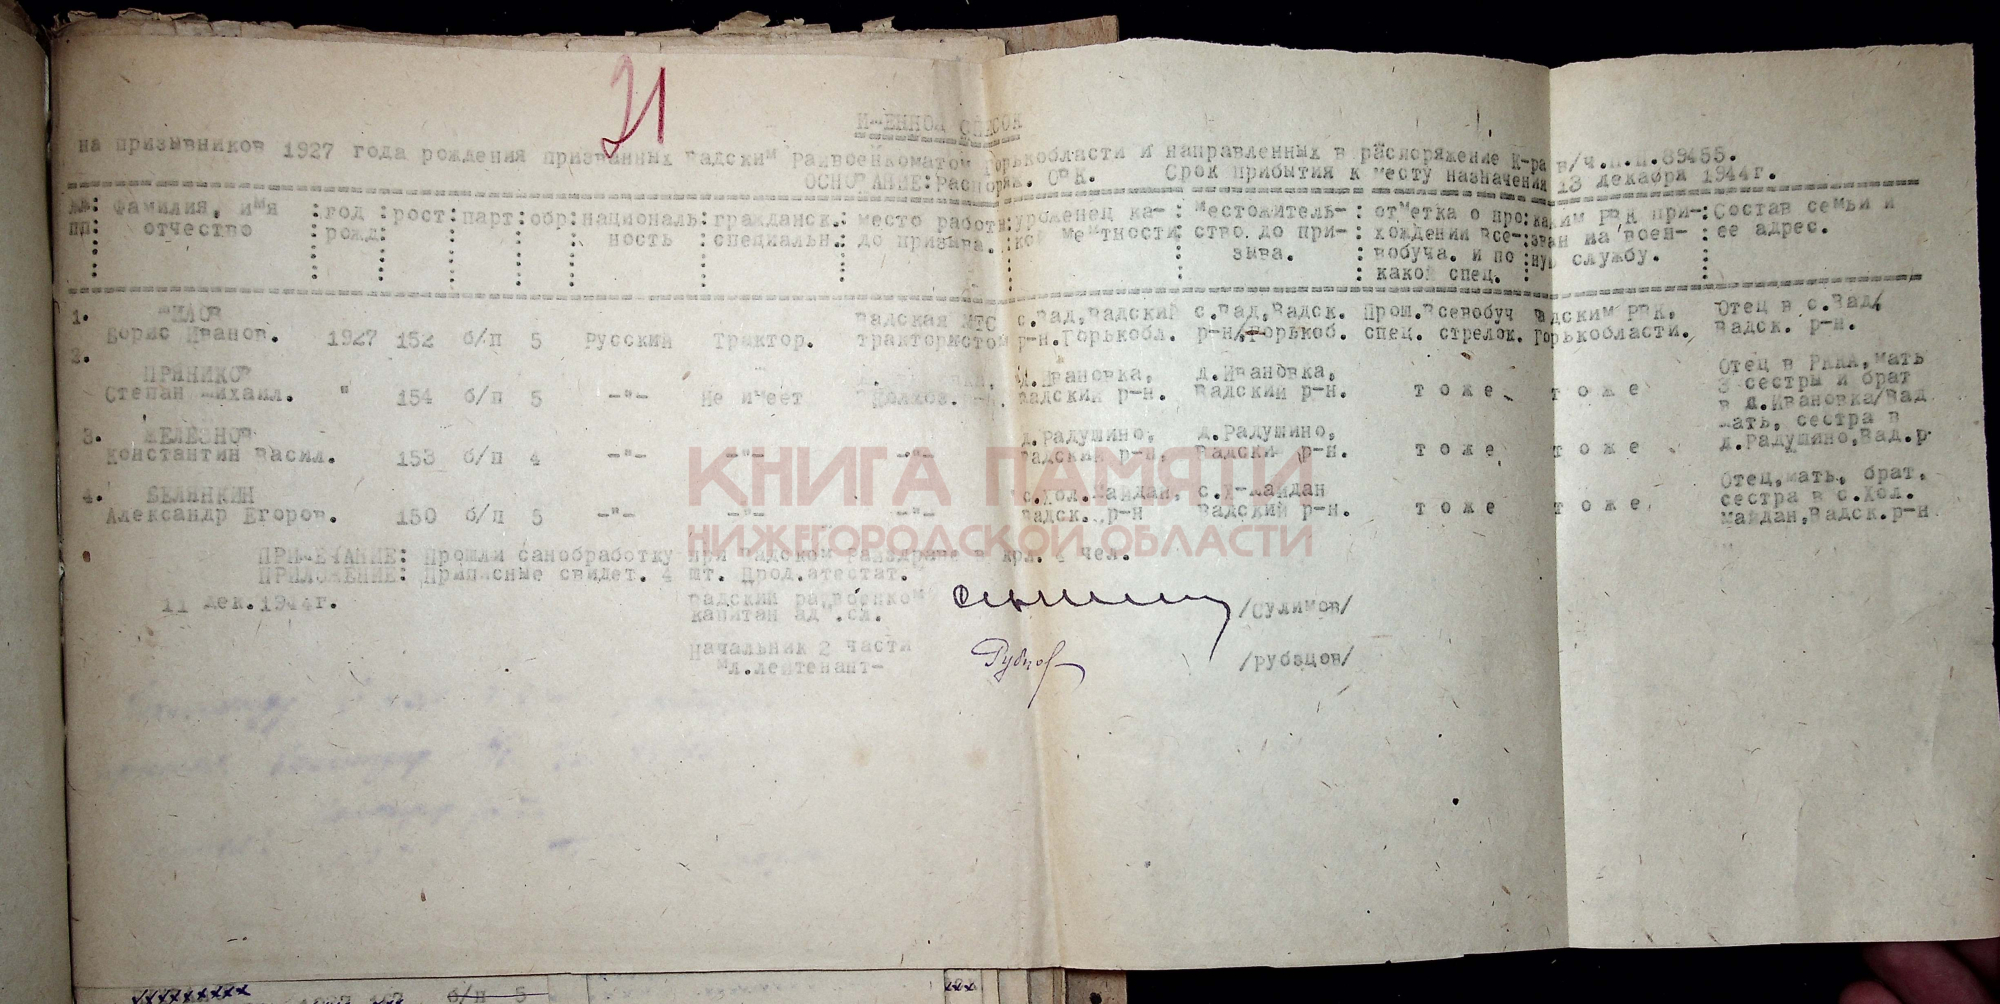 21
ИМЕННОЙ СПИСОК
на призывников 1927 года рождения призванных Вадским Райвоенкоматом Горькобласти и направленных в распоряжение К-ра в/ч.П.П.89455.
ОСНОВАНИЕ: Распоряж. ОВК. Срок прибытия к месту назначения 13 декабря 1944г.
№№ пп : Фамилия, имя отчество : год рожд : рост : парт : обр : националь- ность : гражданск. специальн. : место работы до призыва. : уроженец ка- кой местности : местожитель- ство до при- зыва. : отметка о про- хождении Все- вобуча. и по какой спец. : каким РВК при- зван на воен- ную службу. : Состав семьи и ее адрес.
1. Борис Иванов. 1927 152 б/п 5 Русский Трактор. Вадская МТС трактористом с.Вад,Вадский р-н.Горькобл. с.Вад,Вадск. р-н/Горькоб. Прош.Всевобуч спец. стрелок. Вадским РВК, Горькобласти. Отец в с.Вад, Вадск. р-н.
2. ПРЯНИКОВ Степан Михаил. " 154 б/п 5 -"- Не имеет колхоз. д.Ивановка, Вадский р-н. д.Ивановка, Вадский р-н. тоже тоже Отец в РККА, мать 3 сестры и брат в д.Ивановка/Вад
3. ЖЕЛЕЗНОВ Константин Васил. 153 б/п 4 -"- -"- -"- д.Радушино, Вадский р-н. д.Радушино, Вадский р-н. тоже тоже мать, сестра в д.Радушино,Вад.р
4. БЕЛЯНКИН Александр Егоров. 150 б/п 5 -"- -"- -"- с.Хол.Майдан, Вадск. р-н с.Х-Майдан Вадский р-н. тоже тоже Отец,мать, брат, сестра в с.Хол. Майдан,Вадск.р-н
ПРИМЕЧАНИЕ: Прошли санобработку при Вадском Райздраве в кол. 4 чел.
ПРИЛОЖЕНИЕ: Приписные свидет. 4 шт. Прод.атестат.
11 дек.1944г.
Вадский райвоенком
капитан адм.сл. /Сулимов/
Начальник 2 части
мл.лейтенант- /Рубцов/
КНИГА ПАМЯТИ
НИЖЕГОРОДСКОЙ ОБЛАСТИ
б/п 5